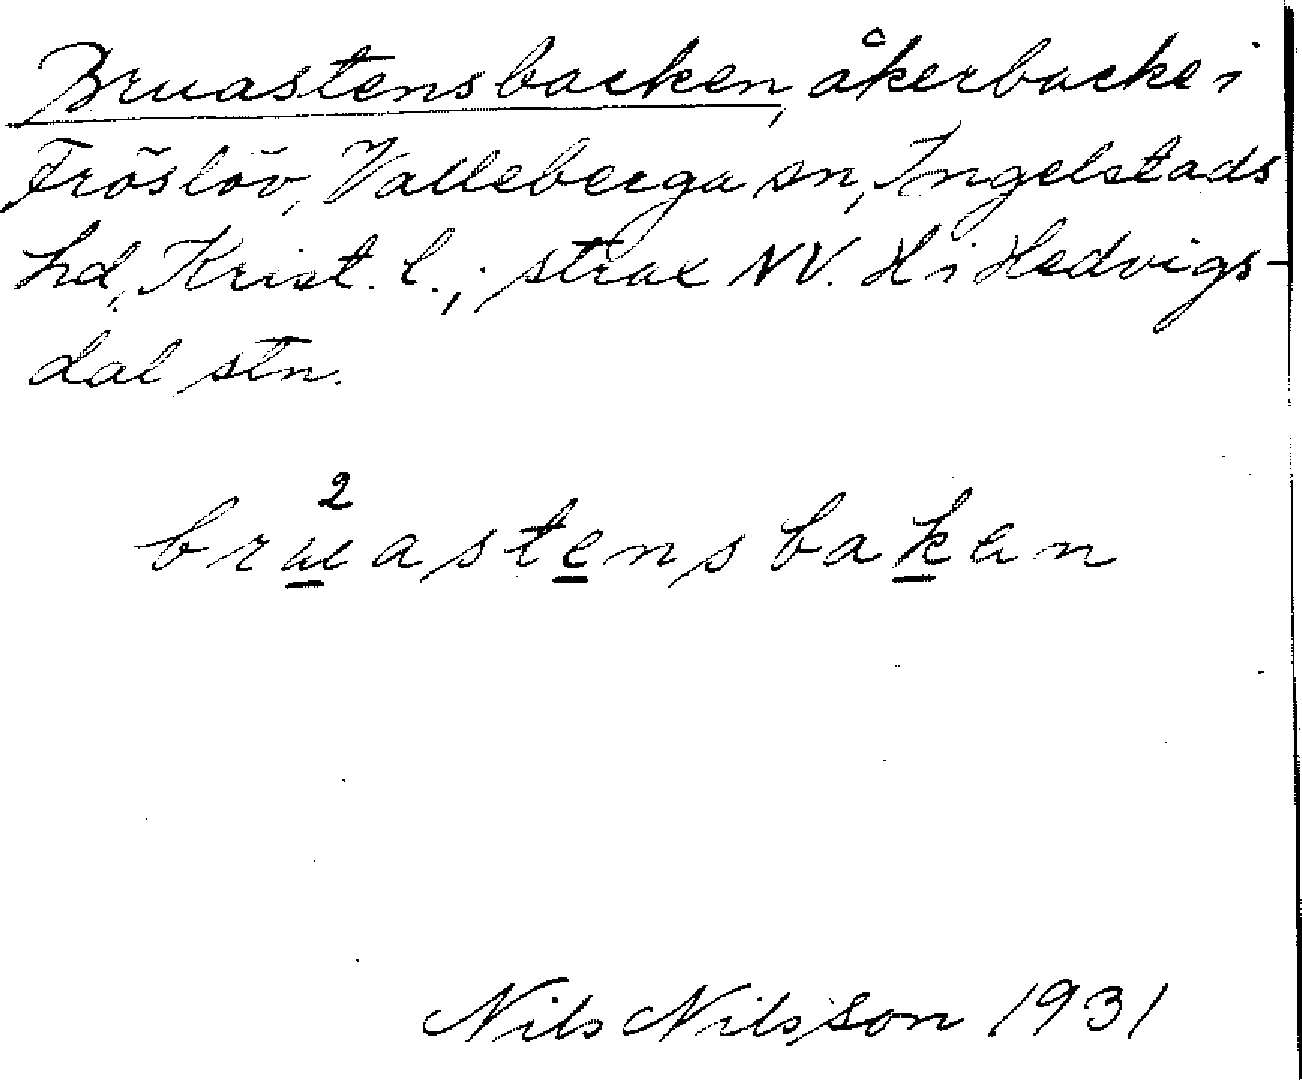 Bruastensbacken, åkerbacke i
Fröslöv, Valleberga sn, Ingelstads
hd, Krist. l.; strax NV. H i Hedvigs-
dal stn.
bru²astensbaken
Nils Nilsson 1931